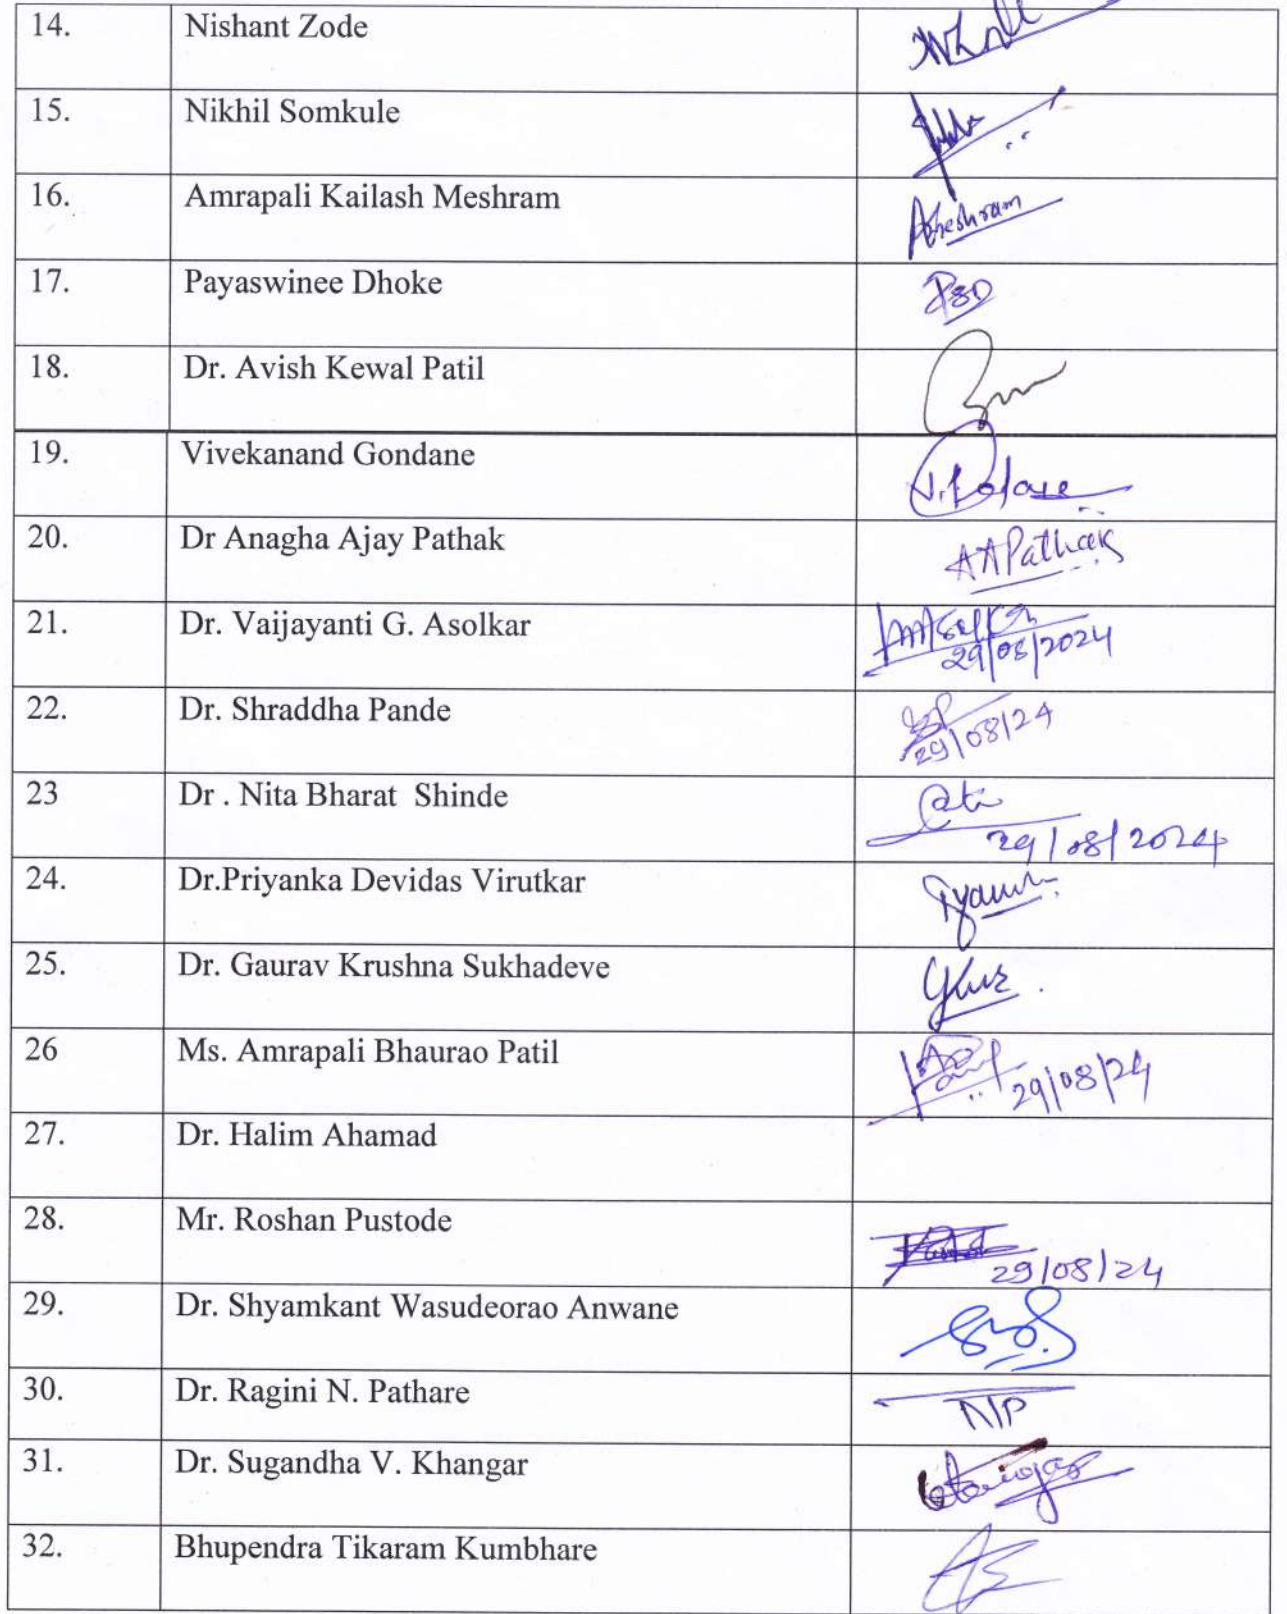 14. Nishant Zode
15. Nikhil Somkule
16. Amrapali Kailash Meshram Ameshram
17. Payaswinee Dhoke PSD
18. Dr. Avish Kewal Patil
19. Vivekanand Gondane
20. Dr Anagha Ajay Pathak AAPathak
21. Dr. Vaijayanti G. Asolkar
29/08/2024
22. Dr. Shraddha Pande
29/08/24
23 Dr . Nita Bharat Shinde
29/08/2024
24. Dr.Priyanka Devidas Virutkar
25. Dr. Gaurav Krushna Sukhadeve
26 Ms. Amrapali Bhaurao Patil 29/08/24
27. Dr. Halim Ahamad
28. Mr. Roshan Pustode
29/08/24
29. Dr. Shyamkant Wasudeorao Anwane
30. Dr. Ragini N. Pathare
31. Dr. Sugandha V. Khangar
32. Bhupendra Tikaram Kumbhare